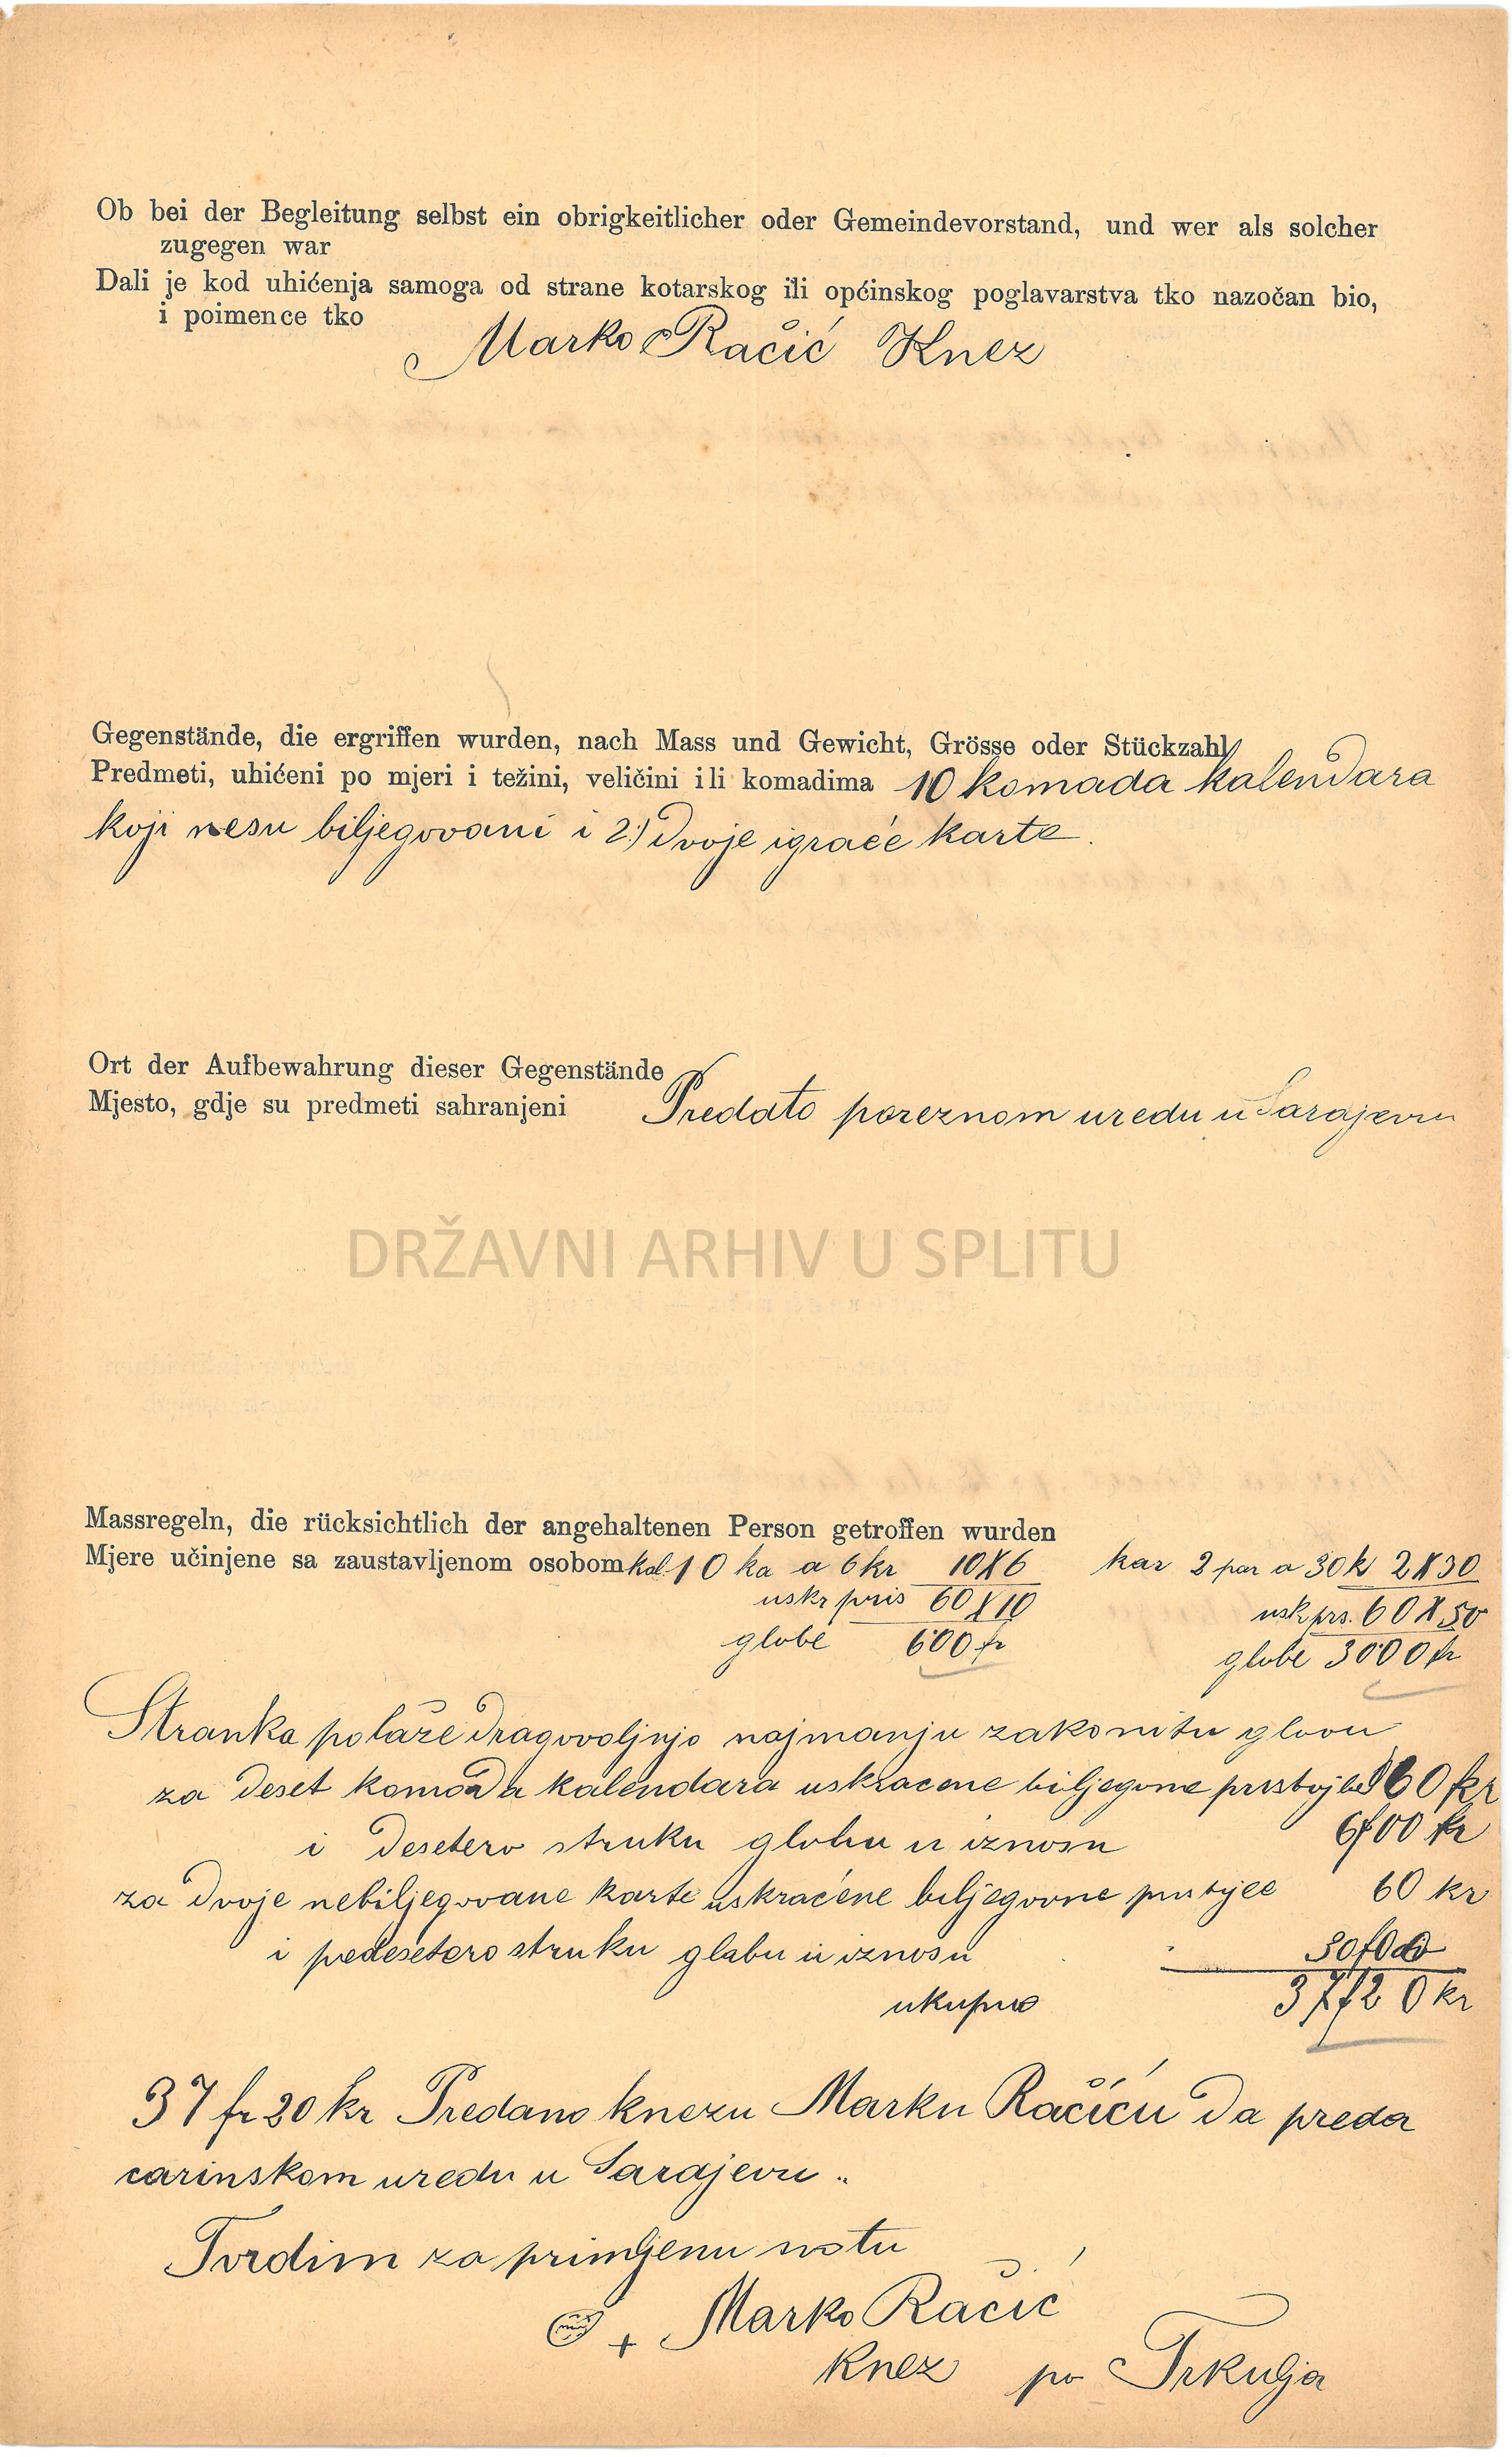 Ob bei der Begleitung selbst ein obrigkeitlicher oder Gemeindevorstand, und wer als solcher
zugegen war
Dali je kod uhićenja samoga od strane kotarskog ili općinskog poglavarstva tko nazočan bio,
i poimence tko
Marko Račić Knez
Gegenstände, die ergriffen wurden, nach Mass und Gewicht, Grösse oder Stückzahl
Predmeti, uhićeni po mjeri i težini, veličini ili komadima 10 komada kalendara
koji nesu biljegovani i 2) dvoje igraće karte.
Ort der Aufbewahrung dieser Gegenstände
Mjesto, gdje su predmeti sahranjeni Predato poreznom uredu u Sarajevu
DRŽAVNI ARHIV U SPLITU
Massregeln, die rücksichtlich der angehaltenen Person getroffen wurden
Mjere učinjene sa zaustavljenom osobom kal. 10 ka a 6 kr 10X6 kar 2 par a 30 k 2X30
uskr pris 60X10 usk prs. 60X50
globe 600 fr globe 3000 fr
Stranka polaže dragovoljnjo najmanju zakonitu
za deset komada kalendara uskracene biljegovne 60 kr
i desetero struku globu u iznosu 6f00 kr
za dvoje nebiljegovane karte uskraćene biljegovne 60 kr
i pedesetero struku glabu u iznosu 30f00
ukupno 37f20 kr
37 fr 20 kr Predano knezu Marku Račiću da preda
carinskom uredu u Sarajevu „
Tvrdim za primljenu
+ Marko Račić
Knez po Trkulja